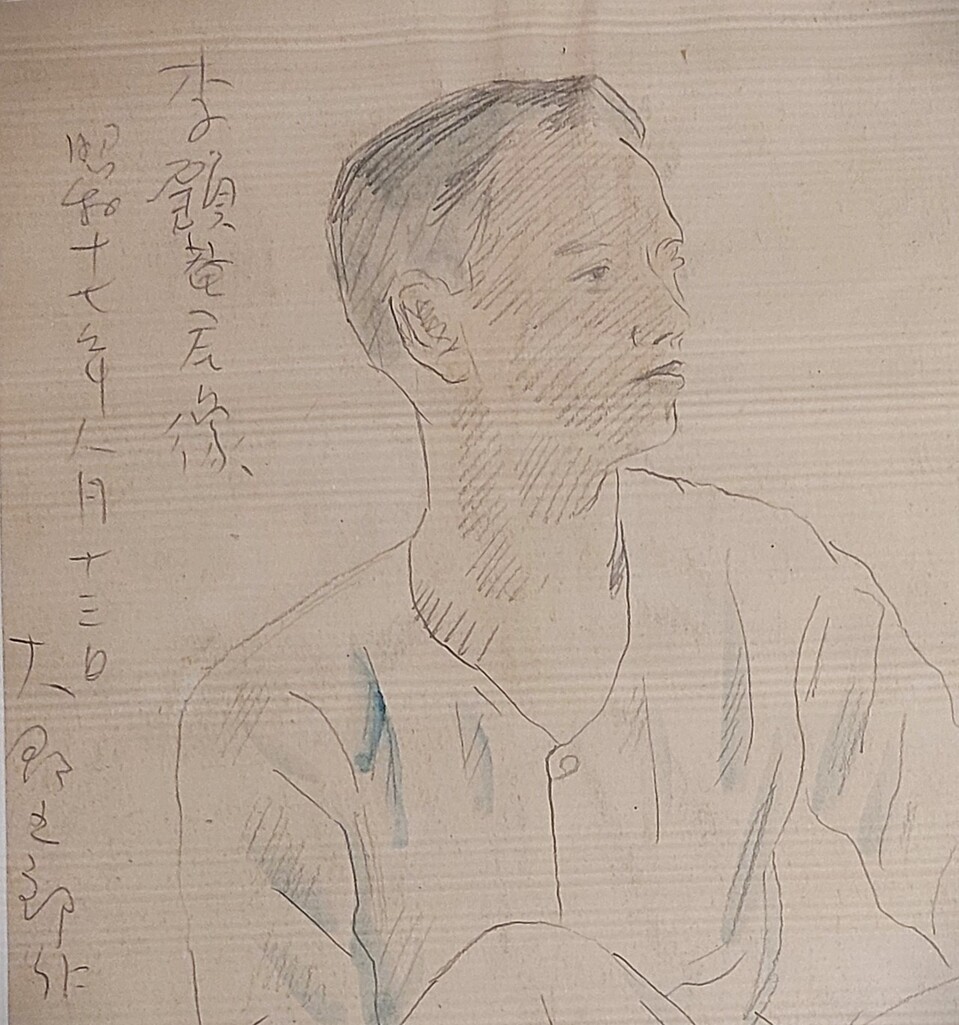 李顧菴君像、
昭和十七年八月十三日
大野五郎作